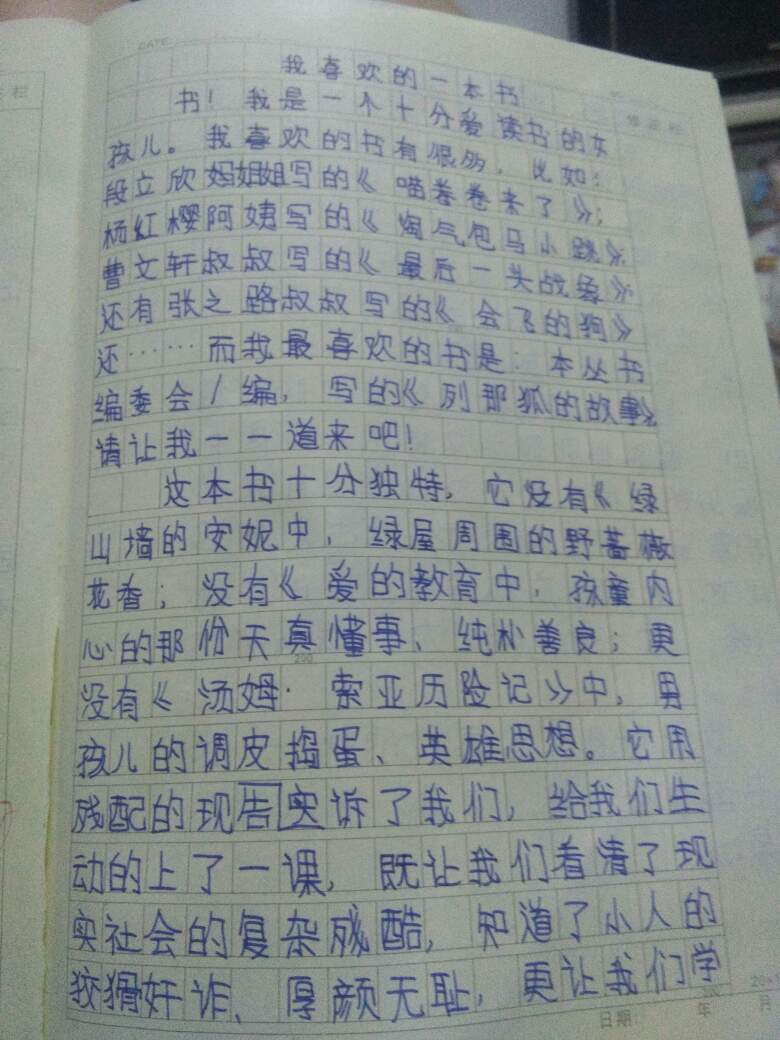 DATE
我喜欢的一本书
书！我是一个十分爱读书的女
孩儿。我喜欢的书有很多，比如：
段立欣妈姐姐写的《喵卷卷来了》；
杨红樱阿姨写的《淘气包马小跳》；
曹文轩叔叔写的《最后一头战象》；
还有张之路叔叔写的《会飞的狗》
还……而我最喜欢的书是：本丛书
编委会/编，写的《列那狐的故事》。
请让我一一道来吧！
这本书十分独特，它没有《绿
山墙的安妮中，绿屋周围的野蔷薇
花香；没有《爱的教育中，孩童内
心的那份天真懂事、纯朴善良；更
没有《汤姆·索亚历险记》中，男
孩儿的调皮捣蛋、英雄思想。它用
残配的现告实诉了我们，给我们生
动的上了一课，既让我们看清了现
实社会的复杂残酷，知道了小人的
狡猾奸诈、厚颜无耻，更让我们学
日期： 年 月